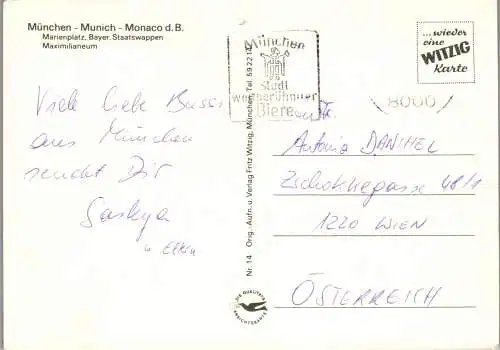 München - Munich - Monaco d. B.
Marienplatz, Bayer. Staatswappen
Maximilianeum
Viele liebe Bussi
aus München
sendet Dir
Saskya
u. Eltern
München
Stadt
weltberühmter
Biere
...wieder
eine
WITZIG
Karte
8000
Antonia DANIHEL
Zschokkegasse 48/1
1220 WIEN
ÖSTERREICH
Nr. 14 Orig.-Aufn. u. Verlag Fritz Witzig, München, Tel. 59 22 12
DIE QUALITÄTS
ANSICHTSKARTE